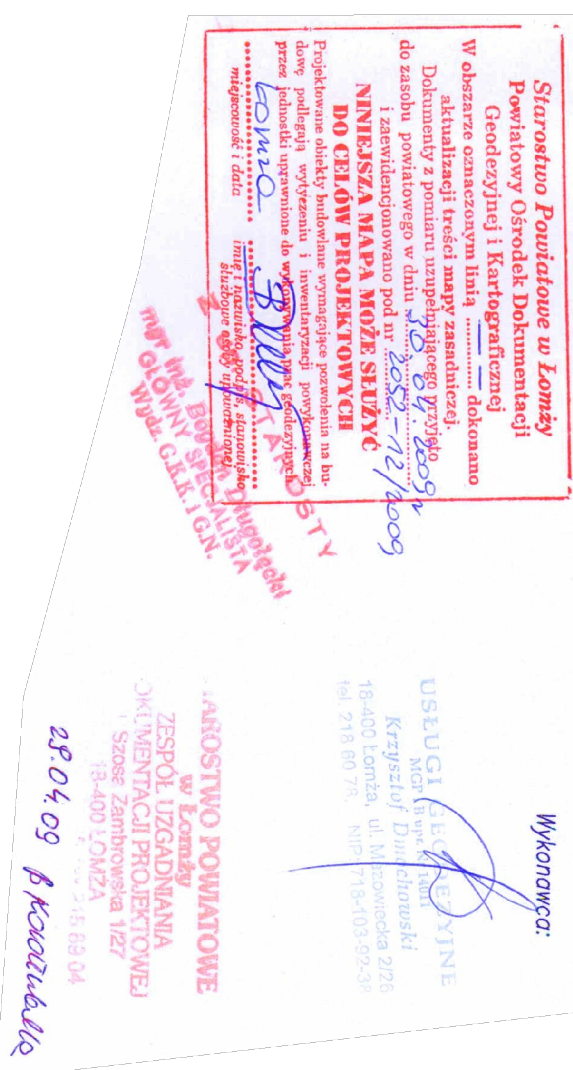 Starostwo Powiatowe w Łomży
Powiatowy Ośrodek Dokumentacji
Geodezyjnej i Kartograficznej
W obszarze oznaczonym linią ............ dokonano
aktualizacji treści mapy zasadniczej.
Dokumenty z pomiaru uzupełniającego przyjęto
do zasobu powiatowego w dniu 30.04.2009 r
i zaewidencjonowano pod nr 2052-12/2009
NINIEJSZA MAPA MOŻE SŁUŻYĆ
DO CELÓW PROJEKTOWYCH
Projektowane obiekty budowlane wymagające pozwolenia na bu-
dowę podlegają wytyczeniu i inwentaryzacji powykonawczej
przez jednostki uprawnione do wykonywania prac geodezyjnych
Łomża
miejscowość i data
imię i nazwisko, podpis, stanowisko
służbowe osoby upoważnionej
Z STAROSTY
mgr inż. Bogdan Długołęcki
GŁÓWNY SPECJALISTA
Wydz. G.K.K. i G.N.
Wykonawca:
USŁUGI GEODEZYJNE
Krzysztof Duchowski
18-400 Łomża, ul. Mazowiecka 2/26
tel. 218 60 78, NIP 718-103-92-38
STAROSTWO POWIATOWE
w Łomży
ZESPÓŁ UZGADNIANIA
DOKUMENTACJI PROJEKTOWEJ
Szosa Zambrowska 1/27
18-400 ŁOMŻA
215 69 04
28.04.09